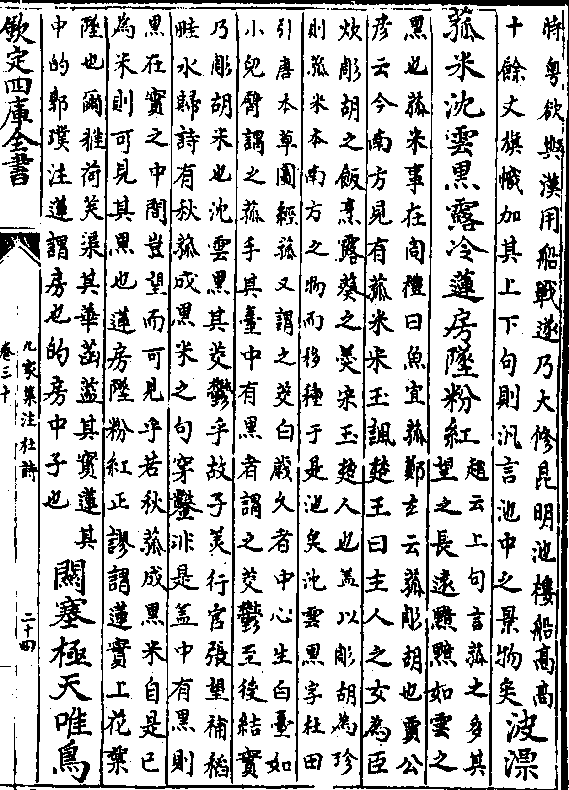 時粤欲與漢用船戰遂乃大修昆明池樓船高高
十餘丈旗幟加其上下句則汎言池中之景物矣
波漂
菰米沈雲黒露冷蓮房墜粉紅
趙云上句言菰之多其
望之長逺黯黯如雲之
黒也菰米事在周禮曰魚宜菰鄭玄云菰彫胡也賈公
彦云今南方見有菰米宋玉諷楚王曰主人之女為臣
炊彫胡之飯烹露葵之羮宋玉楚人也蓋以彫胡為珍
則菰米本南方之物而移種于是池矣沈雲黒字杜田
引唐本草圖經菰又謂之茭白嵗久者中心生白臺如
小兒臂謂之菰手其臺中有黒者謂之茭鬱至後結實
乃彫胡米也沈雲黒其茭鬱乎故子美行官張望補稻
畦水歸詩有秋菰成黒米之句穿鑿非是蓋中有黒則
黒在實之中間豈望而可見乎若秋菰成黒米自是已
為米則可見其黒也蓮房墜粉紅正謬謂蓮實上花葉
墜也爾雅荷芙渠其華菡萏其實蓮其
中的郭璞注蓮謂房也的房中子也
關塞極天唯鳥
欽定四庫全書
九家集注杜詩
卷三十
二十四